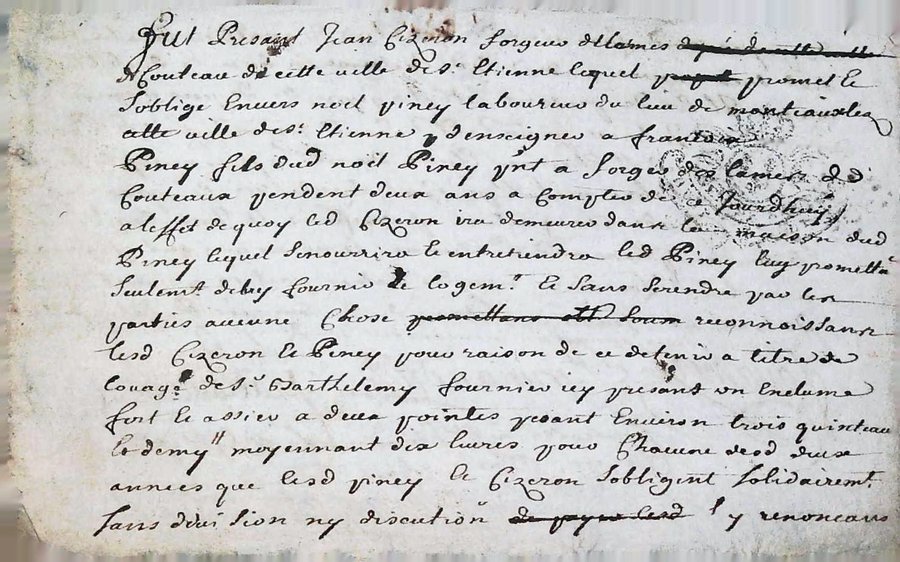 Fut Presant Jean Cizeron forgeur de lames
de Couteau de cette ville de St Etienne lequel promet et
soblige Envers noel piney laboureur du lieu de
cette ville de St Etienne denseigner a francois
Piney fils dud noel Piney pnt a forger des lames de
Couteaux pendent deux ans a Compter de ce Jourdhuy
a leffet de quoy led Cizeron ira demeurer dans la maison dud
Piney lequel se nourrira et entretiendra led Piney luy promettt
seulemt de luy fournir le logemt Et sans se rendre par les
parties aucune Chose reconnoissans
lesd Cizeron et Piney pour raison de ce detenir a titre de
louage de Sr Barthelemy fournier icy presant un Enclume
fort et assier a deux pointes pesant Environ trois quinteau
et demy moyennant dix livres pour Chacune desd deux
annees que lesd piney et Cizeron sobligent solidairemt
sans division ny discution y renoncans